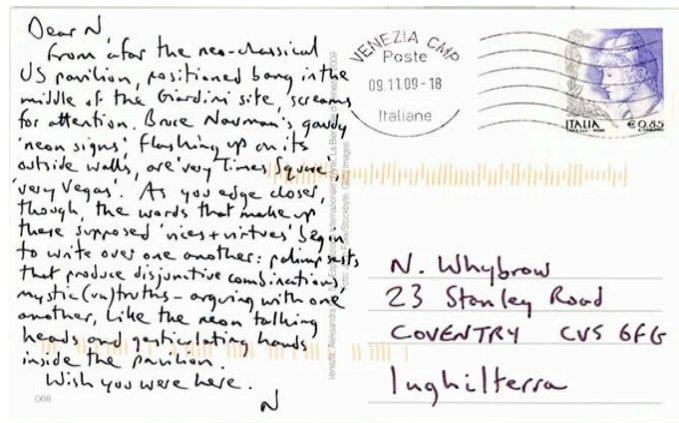 Dear N,
From afar the neo-classical
US pavilion, positioned bang in the
middle of the Giardini site, screams
for attention. Bruce Nauman's gaudy
'neon signs', flashing up on its
outside walls, are 'very Times Square',
'very Vegas'. As you edge closer,
though, the words that make up
these supposed 'vices + virtues' begin
to write over one another: palimpsests
that produce disjunctive combinations,
mystic (un)truths – arguing with one
another, like the neon talking
heads and gesticulating hands
inside the pavilion.
Wish you were here.
N
068
VENEZIA CMP
Poste
09.11.09-18
Italiane
ITALIA
€0,85
N. Whybrow
23 Stanley Road
COVENTRY CV5 6FG
Inghilterra